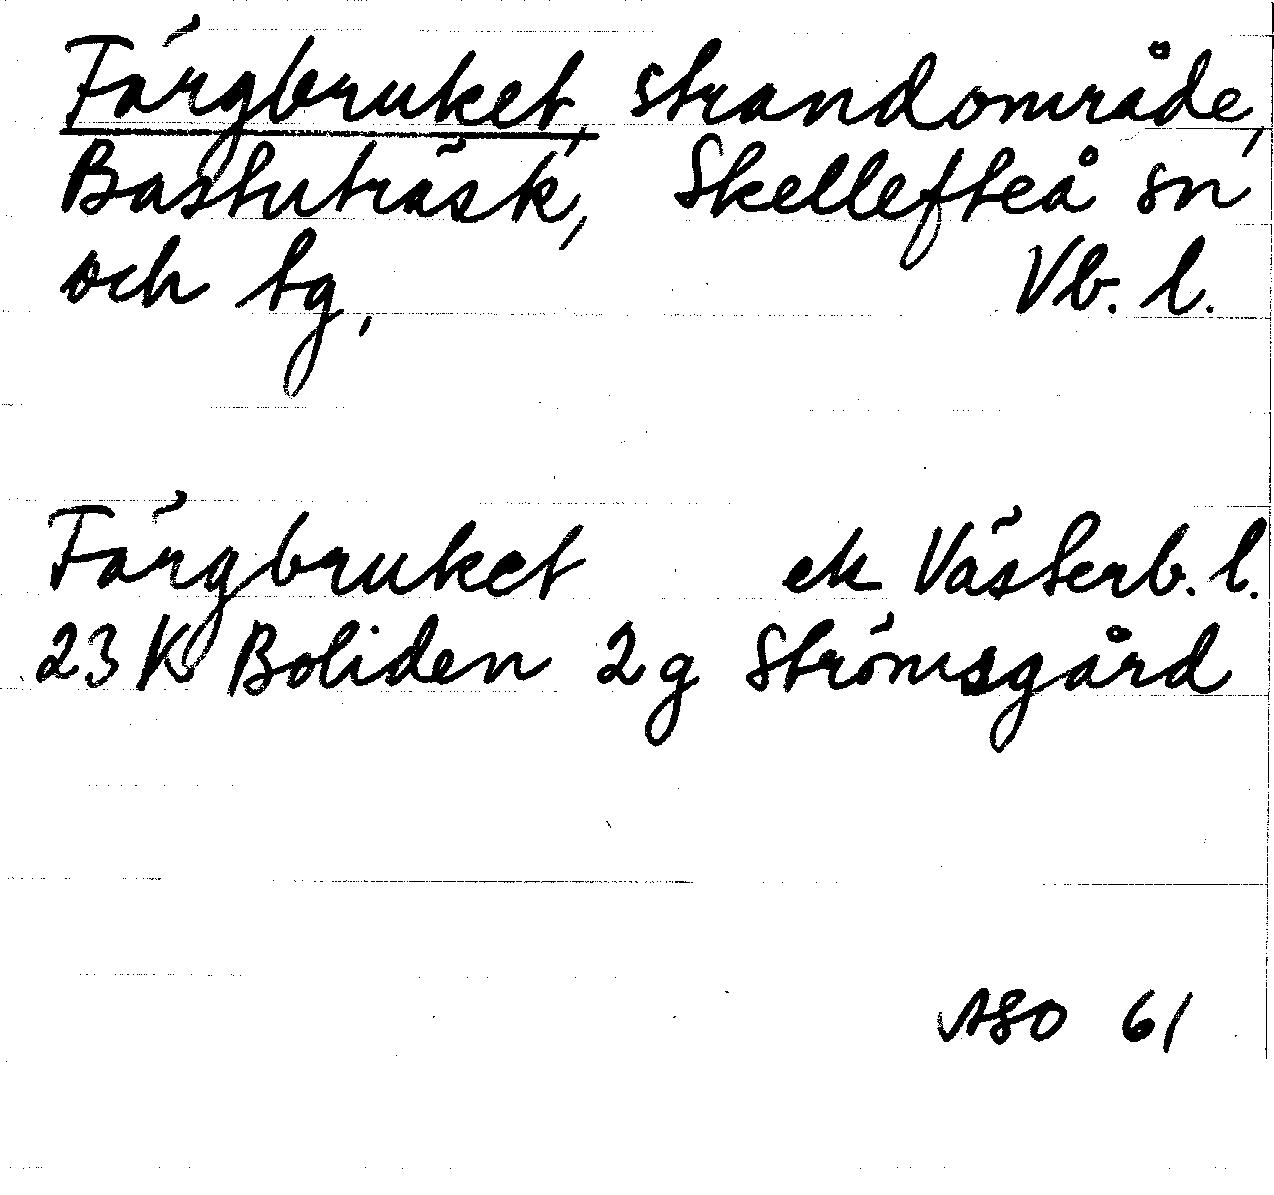 Färgbruket, strandområde,
Bastuträsk, Skellefteå sn
och tg, Vb. l.
Färgbruket ek Västerb. l.
23 K Boliden 2g Strömsgård
ASO 61